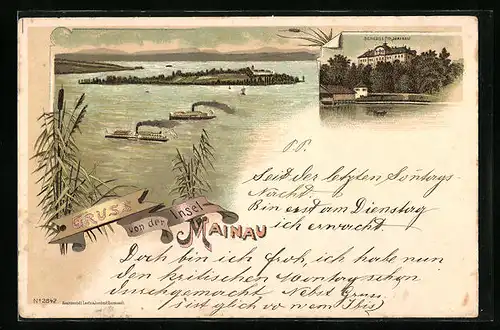 SCHLOSS MAINAU
GRUSS
von der
Insel
MAINAU
P.P.
Seit der letzten Sonntags
Nacht
Bin erst am Dienstag
ich erwacht
Doch bin ich froh, ich habe nun
den kritischen Montag schon
durchgemacht Nebst Gruss
No 2842